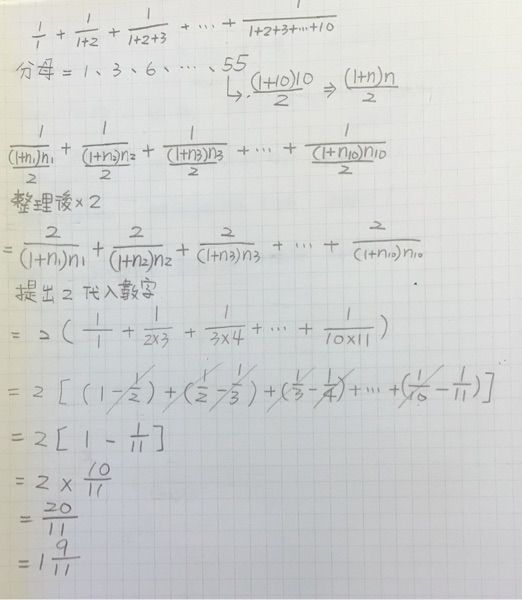 1/1 + 1/(1+2) + 1/(1+2+3) + … + 1/(1+2+3+…+10)
分母 = 1、3、6、…、55
↳ (1+10)10/2 ⇒ (1+n)n/2
1/((1+n₁)n₁/2) + 1/((1+n₂)n₂/2) + 1/((1+n₃)n₃/2) + … + 1/((1+n₁₀)n₁₀/2)
整理後×2
= 2/((1+n₁)n₁) + 2/((1+n₂)n₂) + 2/((1+n₃)n₃) + … + 2/((1+n₁₀)n₁₀)
提出2代入數字
= 2 ( 1/1 + 1/(2×3) + 1/(3×4) + … + 1/(10×11) )
= 2 [ (1 - 1/2) + (1/2 - 1/3) + (1/3 - 1/4) + … + (1/10 - 1/11) ]
= 2 [ 1 - 1/11 ]
= 2 × 10/11
= 20/11
= 1 9/11